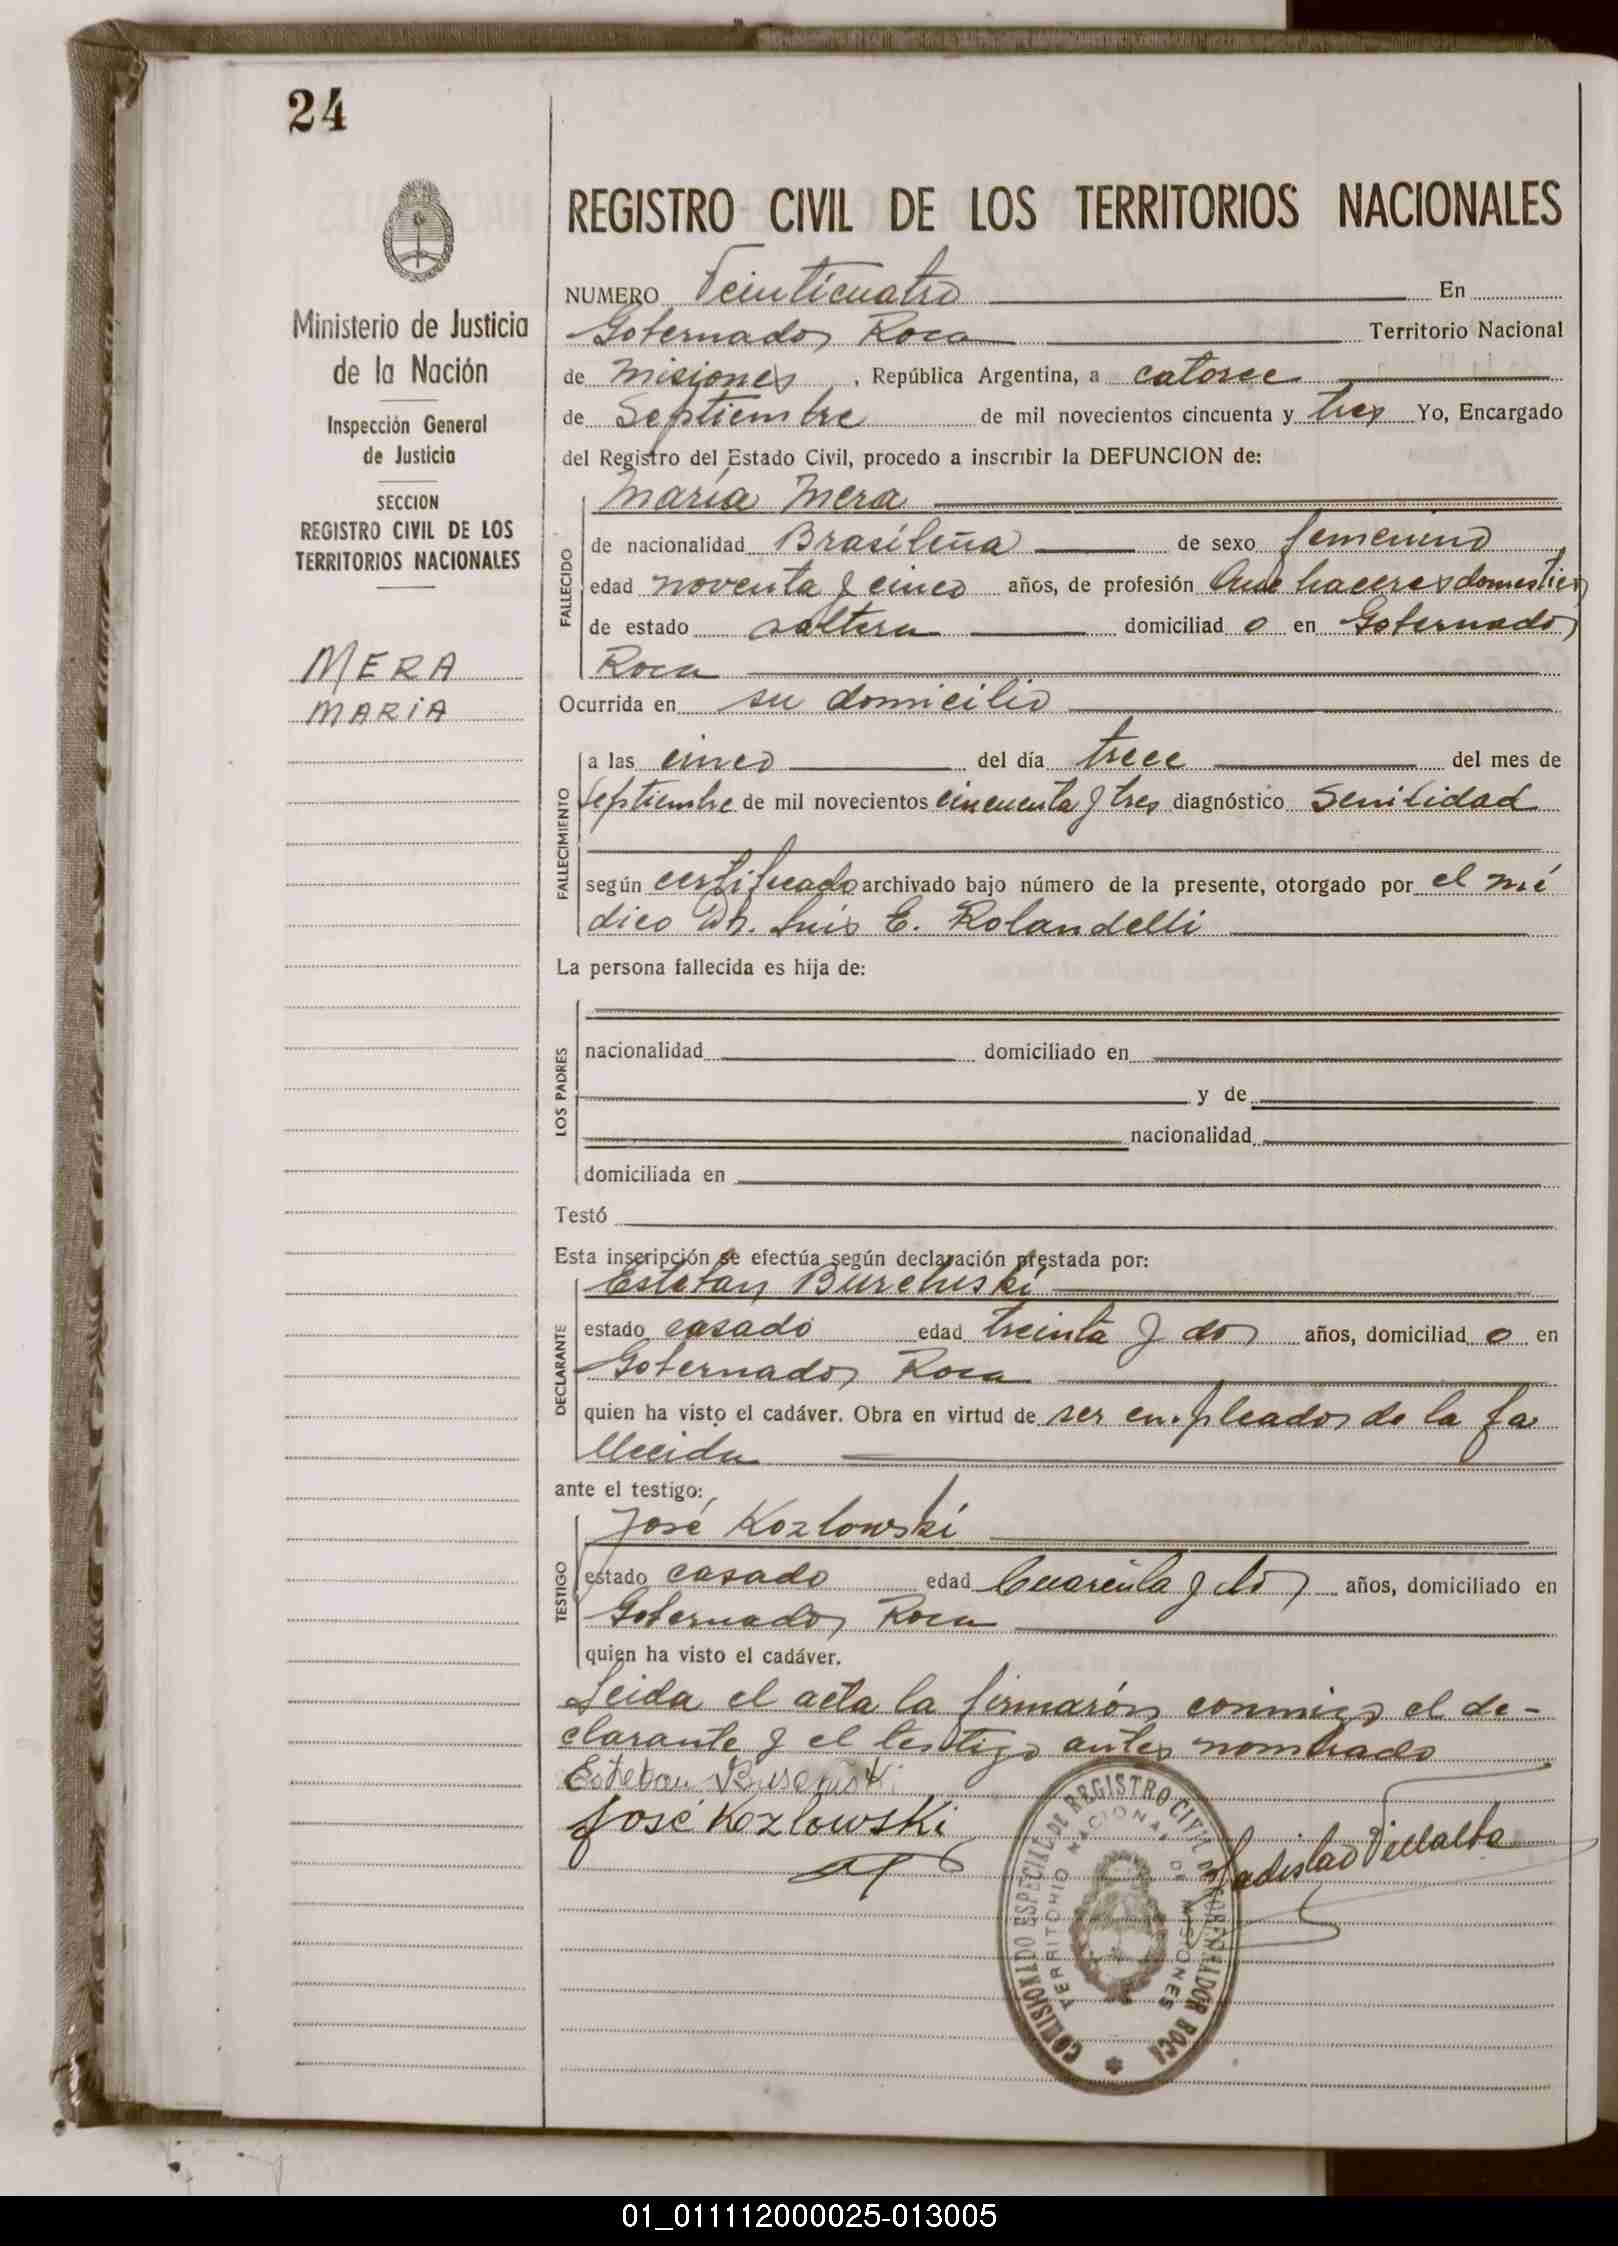 24
REGISTRO CIVIL DE LOS TERRITORIOS NACIONALES
Ministerio de Justicia
de la Nación
Inspección General
de Justicia
SECCION
REGISTRO CIVIL DE LOS
TERRITORIOS NACIONALES
MERA
MARIA
NUMERO Veinticuatro En
Gobernador Roca Territorio Nacional
de Misiones, República Argentina, a catorce
de Septiembre de mil novecientos cincuenta y tres Yo, Encargado
del Registro del Estado Civil, procedo a inscribir la DEFUNCION de:
María Mera
FALLECIDO
de nacionalidad Brasileña de sexo femenino
edad noventa y cinco años, de profesión Que haceres domestico
de estado soltera domiciliad o en Gobernador
Roca
Ocurrida en su domicilio
FALLECIMIENTO
a las cinco del día trece del mes de
Septiembre de mil novecientos cincuenta y tres diagnóstico Senilidad
según certificado archivado bajo número de la presente, otorgado por el mé
dico Dr. Luis E. Rolandelli
La persona fallecida es hija de:
LOS PADRES
nacionalidad domiciliado en
y de
nacionalidad
domiciliada en
Testó
Esta inscripción se efectúa según declaración prestada por:
DECLARANTE
Esteban Burchuski
estado casado edad treinta y dos años, domiciliad o en
Gobernador Roca
quien ha visto el cadáver. Obra en virtud de ser empleador de la fa
llecida
ante el testigo:
TESTIGO
José Kozlowski
estado casado edad Cuarenta y dos años, domiciliado en
Gobernador Roca
quien ha visto el cadáver.
Leida el acta la firmarón conmigo el de-
clarante y el testigo antes nombrado
Esteban
José Kozlowski
Ladislao Villalba
COMISIONADO ESPECIAL DE REGISTRO CIVIL DE GOBERNADOR ROCA
TERRITORIO NACIONAL DE MISIONES
01_011112000025-013005